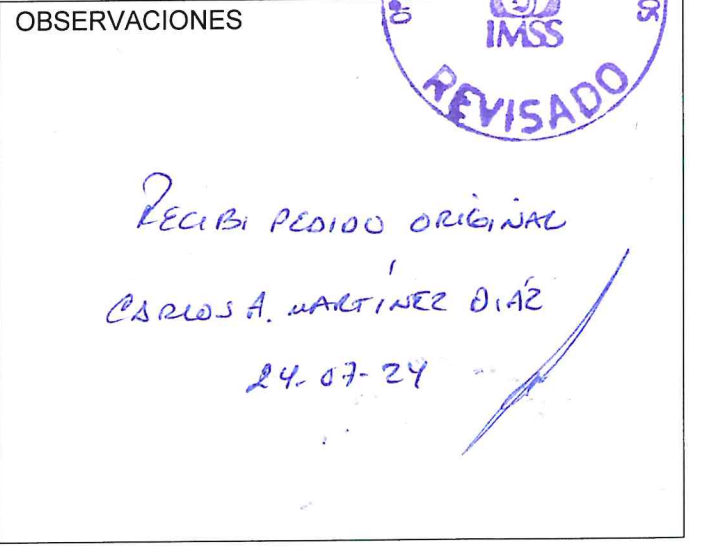 OBSERVACIONES
IMSS
REVISADO
RECIBI PEDIDO ORIGINAL
CARLOS A. MARTÍNEZ DIÁZ
24-07-24